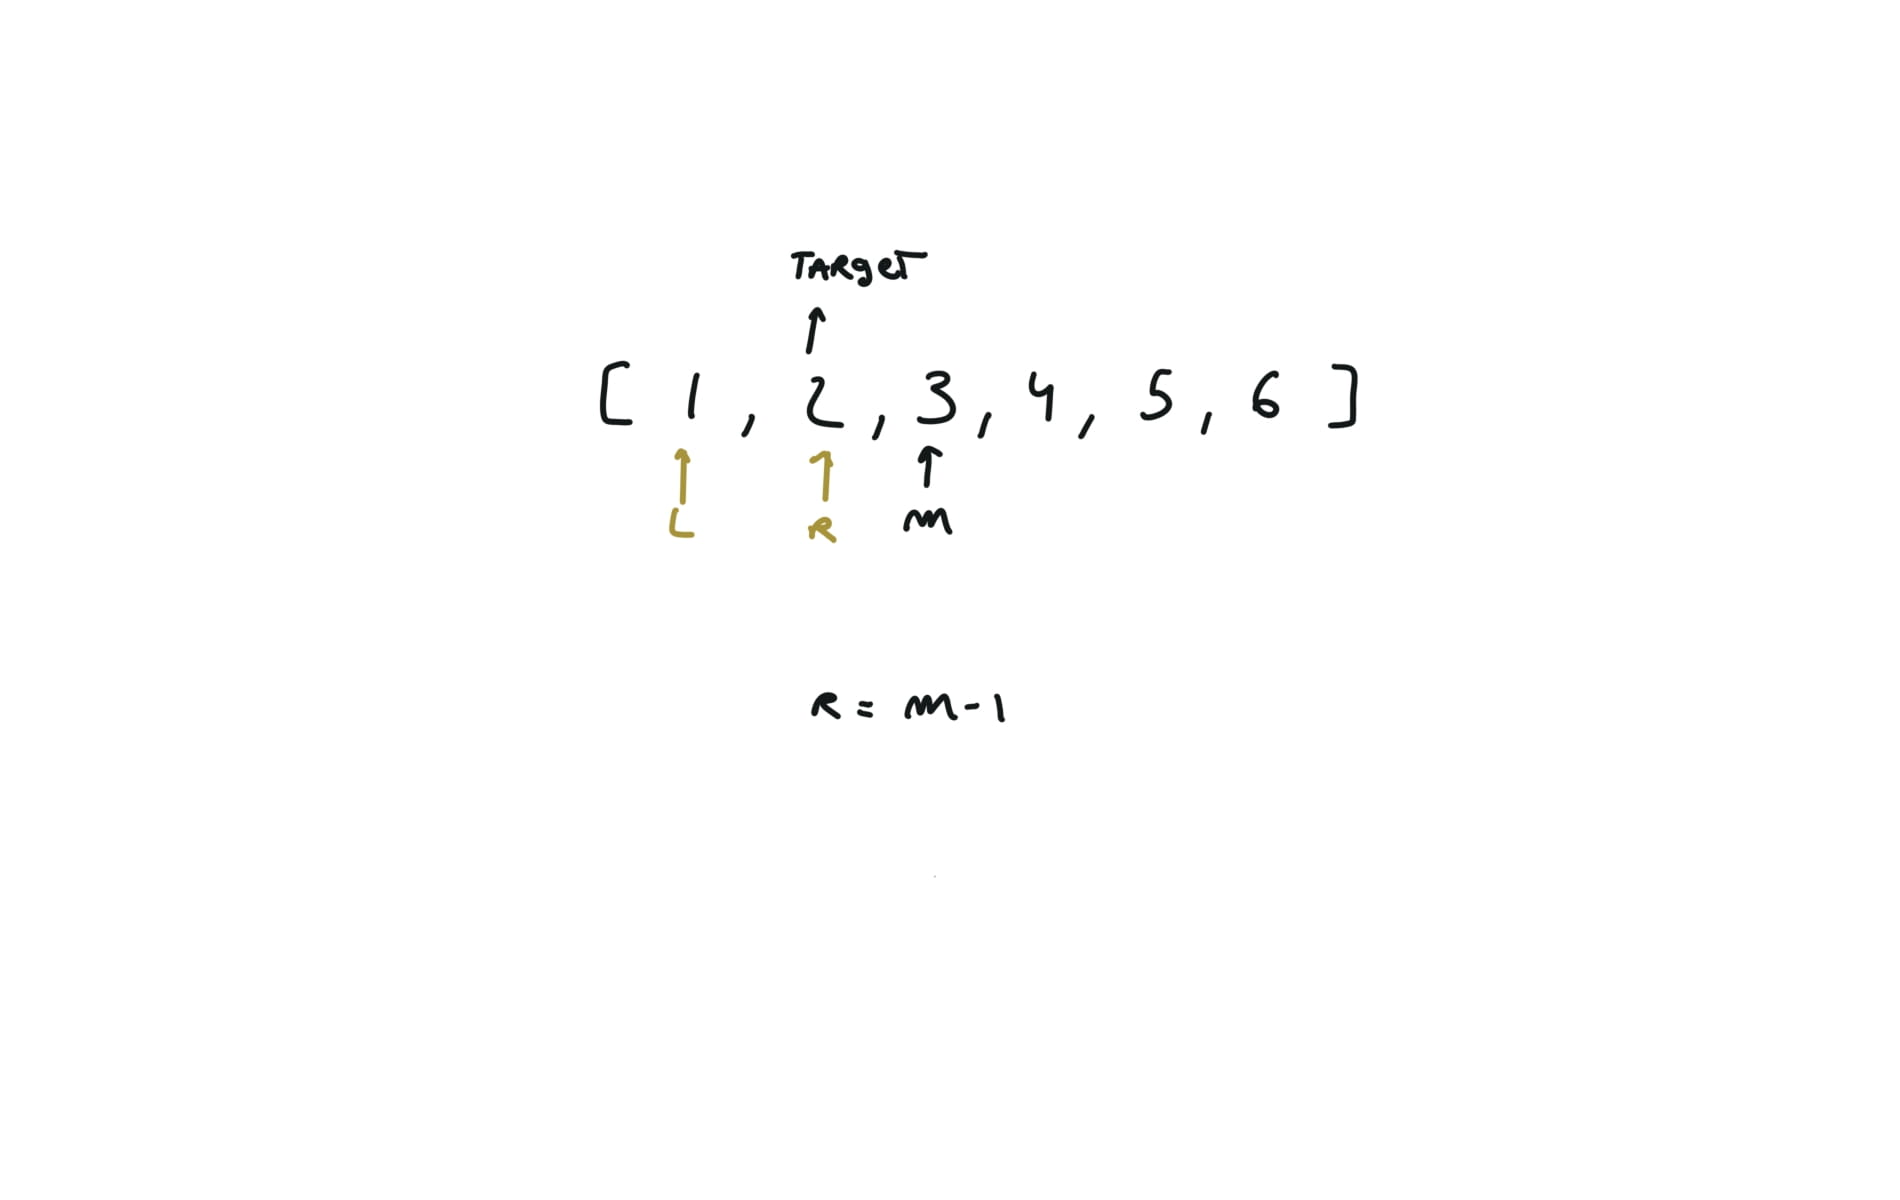 TARgeT
[ 1 , 2 , 3 , 4 , 5 , 6 ]
L R m
R = m - 1